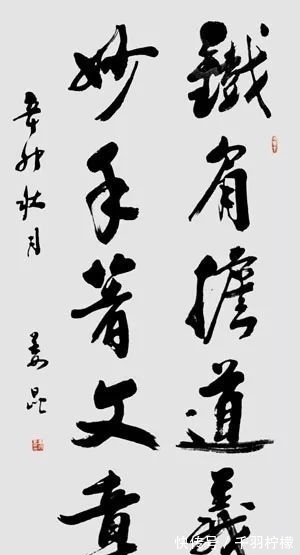 鐵肩擔道義
妙手著文章
辛卯秋月
姜昆
快传号/千羽柠檬